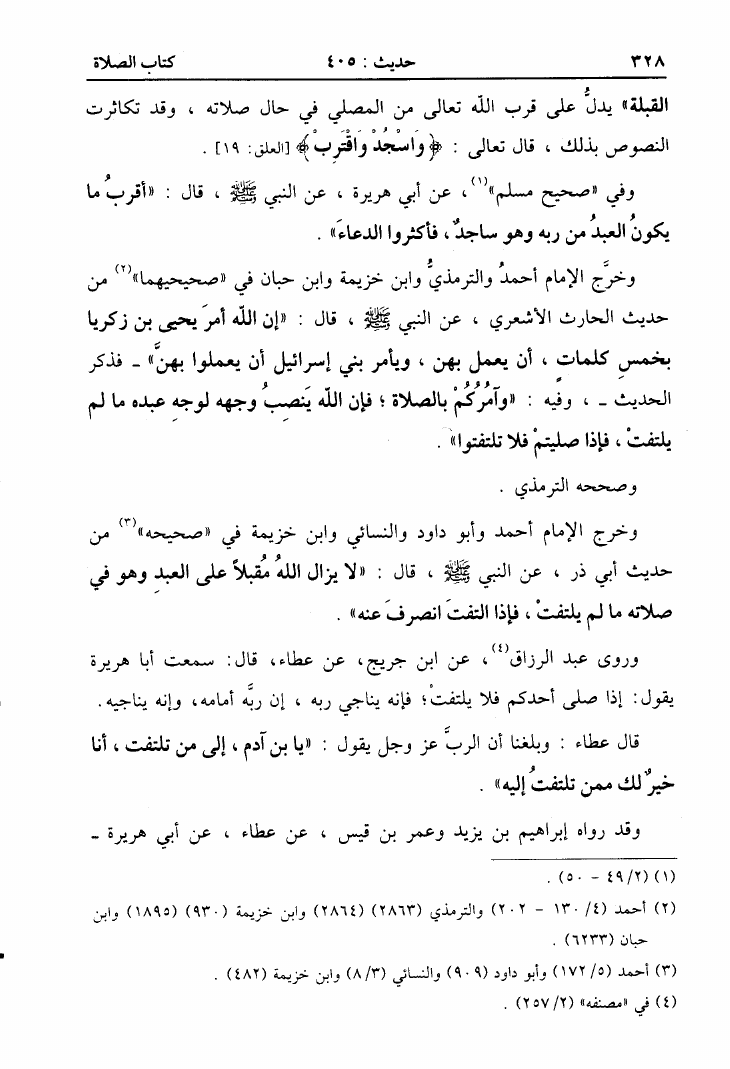 ٣٢٨ حديث : ٤٠٥ كتاب الصلاة
القبلة» يدلُّ على قرب الله تعالى من المصلي في حال صلاته ، وقد تكاثرت
النصوص بذلك ، قال تعالى : ﴿وَاسْجُدْ وَاقْتَرِبْ﴾ [العلق: ١٩] .
وفي «صحيح مسلم»(١)، عن أبي هريرة ، عن النبي ﷺ ، قال : «أقربُ ما
يكونُ العبدُ من ربه وهو ساجدٌ، فأكثروا الدعاءَ» .
وخرَّج الإمام أحمدُ والترمذيُّ وابن خزيمة وابن حبان في «صحيحيهما»(٢) من
حديث الحارث الأشعري ، عن النبي ﷺ ، قال : «إن الله أمرَ يحيى بن زكريا
بخمسِ كلماتٍ ، أن يعمل بهن ، ويأمر بني إسرائيل أن يعملوا بهنَّ» ـ فذكر
الحديث ـ ، وفيه : «وآمُرُكُمْ بالصلاة ؛ فإن الله يَنصبُ وجهه لوجهِ عبده ما لم
يلتفتْ ، فإذا صليتمْ فلا تلتفتوا» .
وصححه الترمذي .
وخرج الإمام أحمد وأبو داود والنسائي وابن خزيمة في «صحيحه»(٣) من
حديث أبي ذر ، عن النبي ﷺ ، قال : «لا يزال اللهُ مُقبلاً على العبدِ وهو في
صلاته ما لم يلتفتْ ، فإذا التفتَ انصرفَ عنه» .
وروى عبد الرزاق(٤)، عن ابن جريج، عن عطاء، قال: سمعت أبا هريرة
يقول: إذا صلى أحدكم فلا يلتفتْ؛ فإنه يناجي ربه ، إن ربَّه أمامه، وإنه يناجيه.
قال عطاء : وبلغنا أن الربَّ عز وجل يقول : «يا بن آدم ، إلى من تلتفت ، أنا
خيرٌ لك ممن تلتفتُ إليه» .
وقد رواه إبراهيم بن يزيد وعمر بن قيس ، عن عطاء ، عن أبي هريرة ـ
(١) (٤٩/٢ - ٥٠) .
(٢) أحمد (٤/ ١٣٠ - ٢٠٢) والترمذي (٢٨٦٣) (٢٨٦٤) وابن خزيمة (٩٣٠) (١٨٩٥) وابن
حبان (٦٢٣٣) .
(٣) أحمد (١٧٢/٥) وأبو داود (٩٠٩) والنسائي (٨/٣) وابن خزيمة (٤٨٢) .
(٤) في «مصنفه» (٢٥٧/٢) .